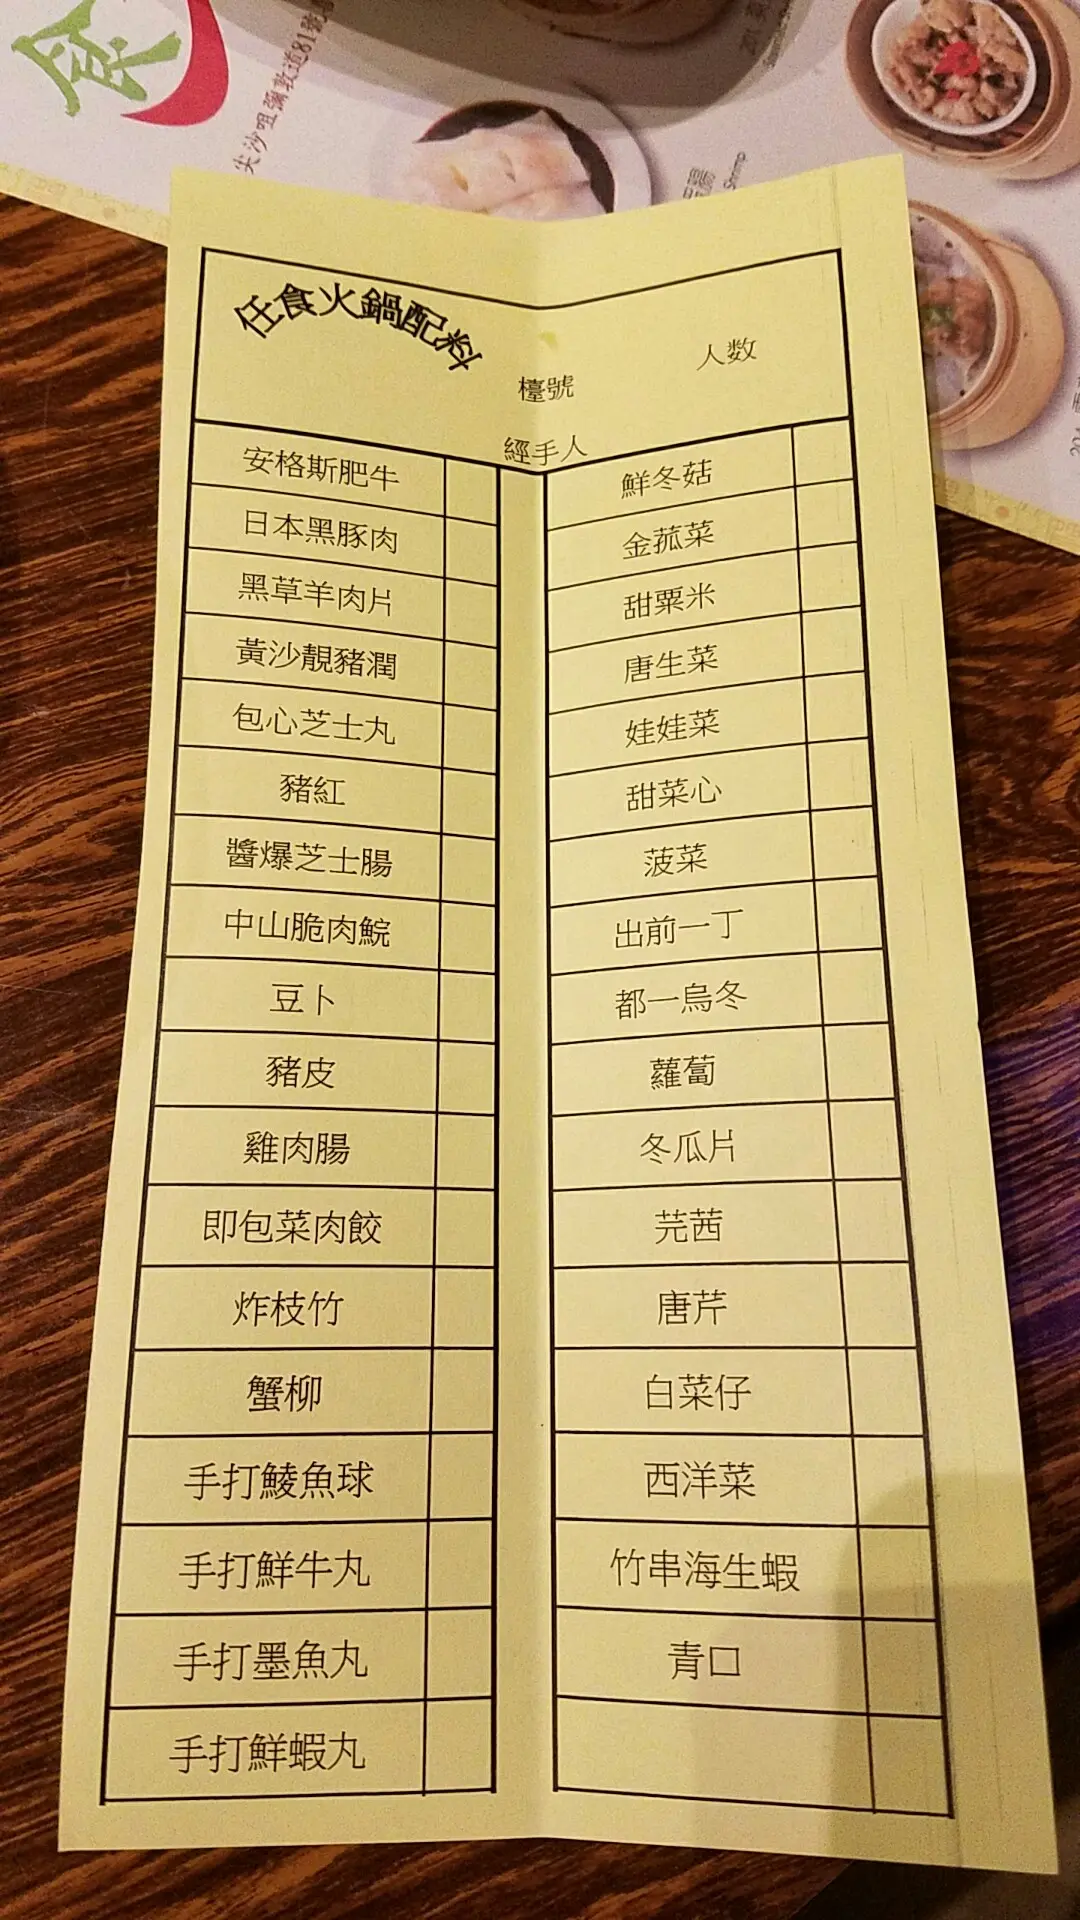 食
尖沙咀彌敦道81號
Shrimp
任食火鍋配料
人数
檯號
經手人
安格斯肥牛
日本黑豚肉
黑草羊肉片
黃沙靚豬潤
包心芝士丸
豬紅
醬爆芝士腸
中山脆肉鯇
豆卜
豬皮
雞肉腸
即包菜肉餃
炸枝竹
蟹柳
手打鯪魚球
手打鮮牛丸
手打墨魚丸
手打鮮蝦丸
鮮冬菇
金菰菜
甜粟米
唐生菜
娃娃菜
甜菜心
菠菜
出前一丁
都一烏冬
蘿蔔
冬瓜片
芫茜
唐芹
白菜仔
西洋菜
竹串海生蝦
青口